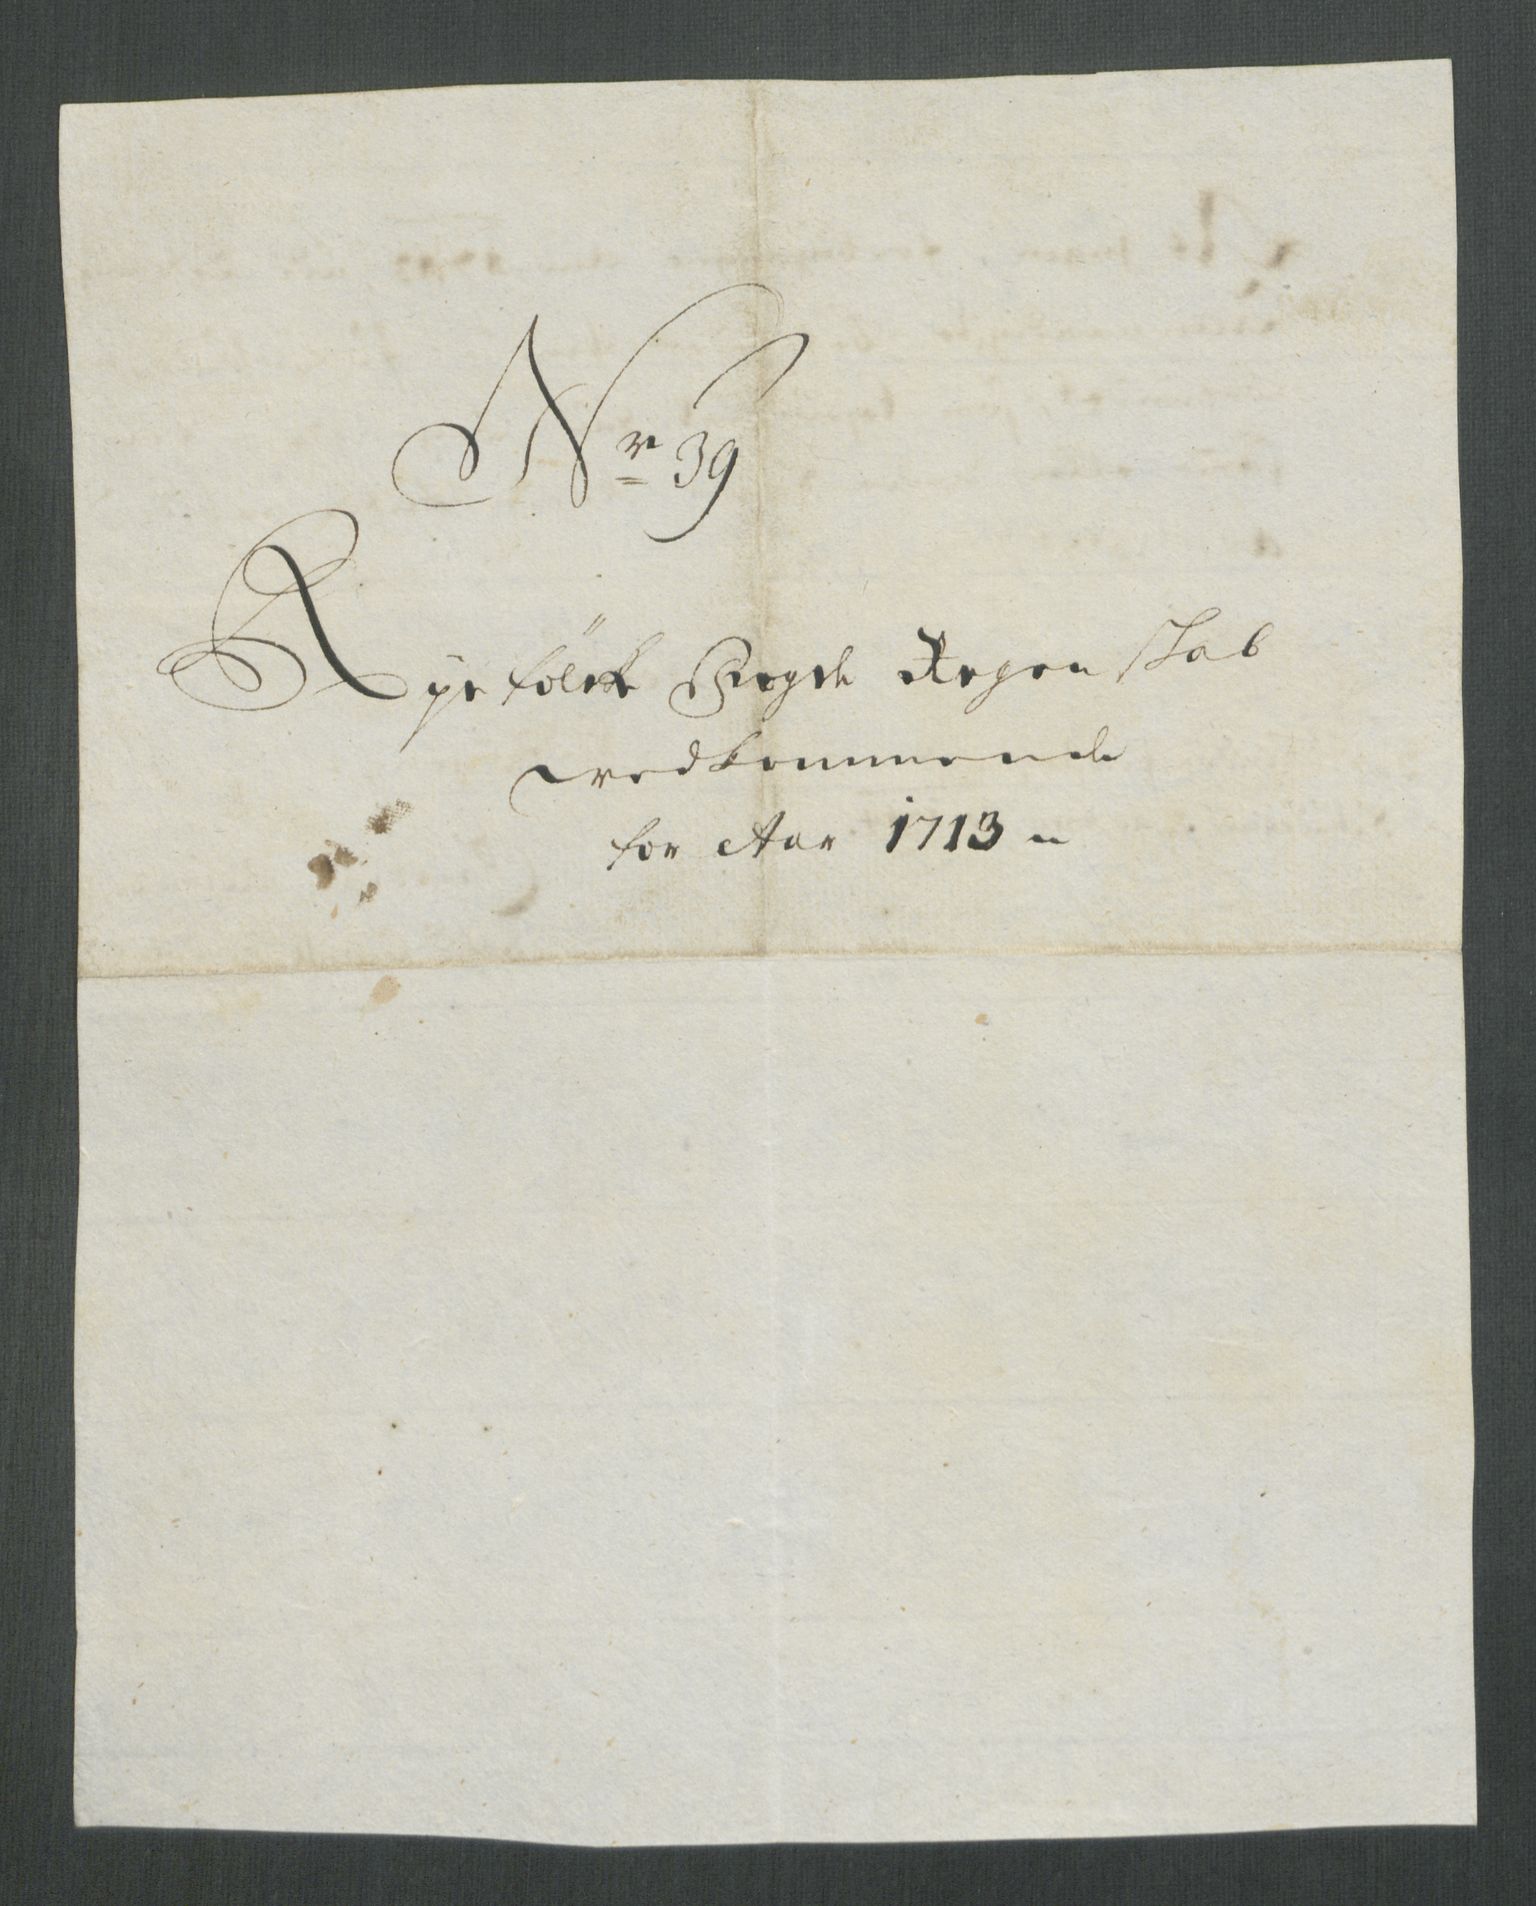 Nr 39
Ryefölcke Bogde Regenskab
vedkommende
for Aar 1713